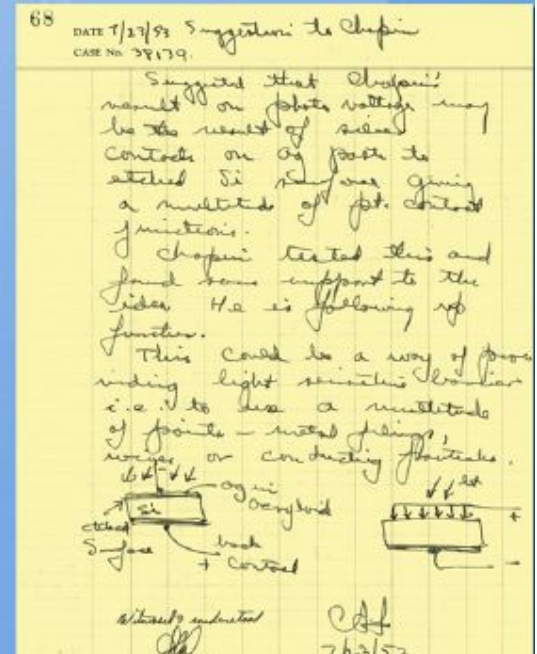 68
DATE 7/23/53 Suggestion to Chapin
CASE No. 38139.
Suggested that Chapin's
result on photo voltage may
be the result of silver
contacts on ag paste to
etched Si surface giving
a multitude of pt. contact
junctions.
Chapin tested this and
found some support to the
idea He is following up
further.
This could be a way of prov
viding light sensitive barrier
i.e. to use a multitude
of points - metal filings,
or conducting
lt
ag in
Si
+
etched
Surface
back
+ contact
-
Witnessed & understood
7/23/53